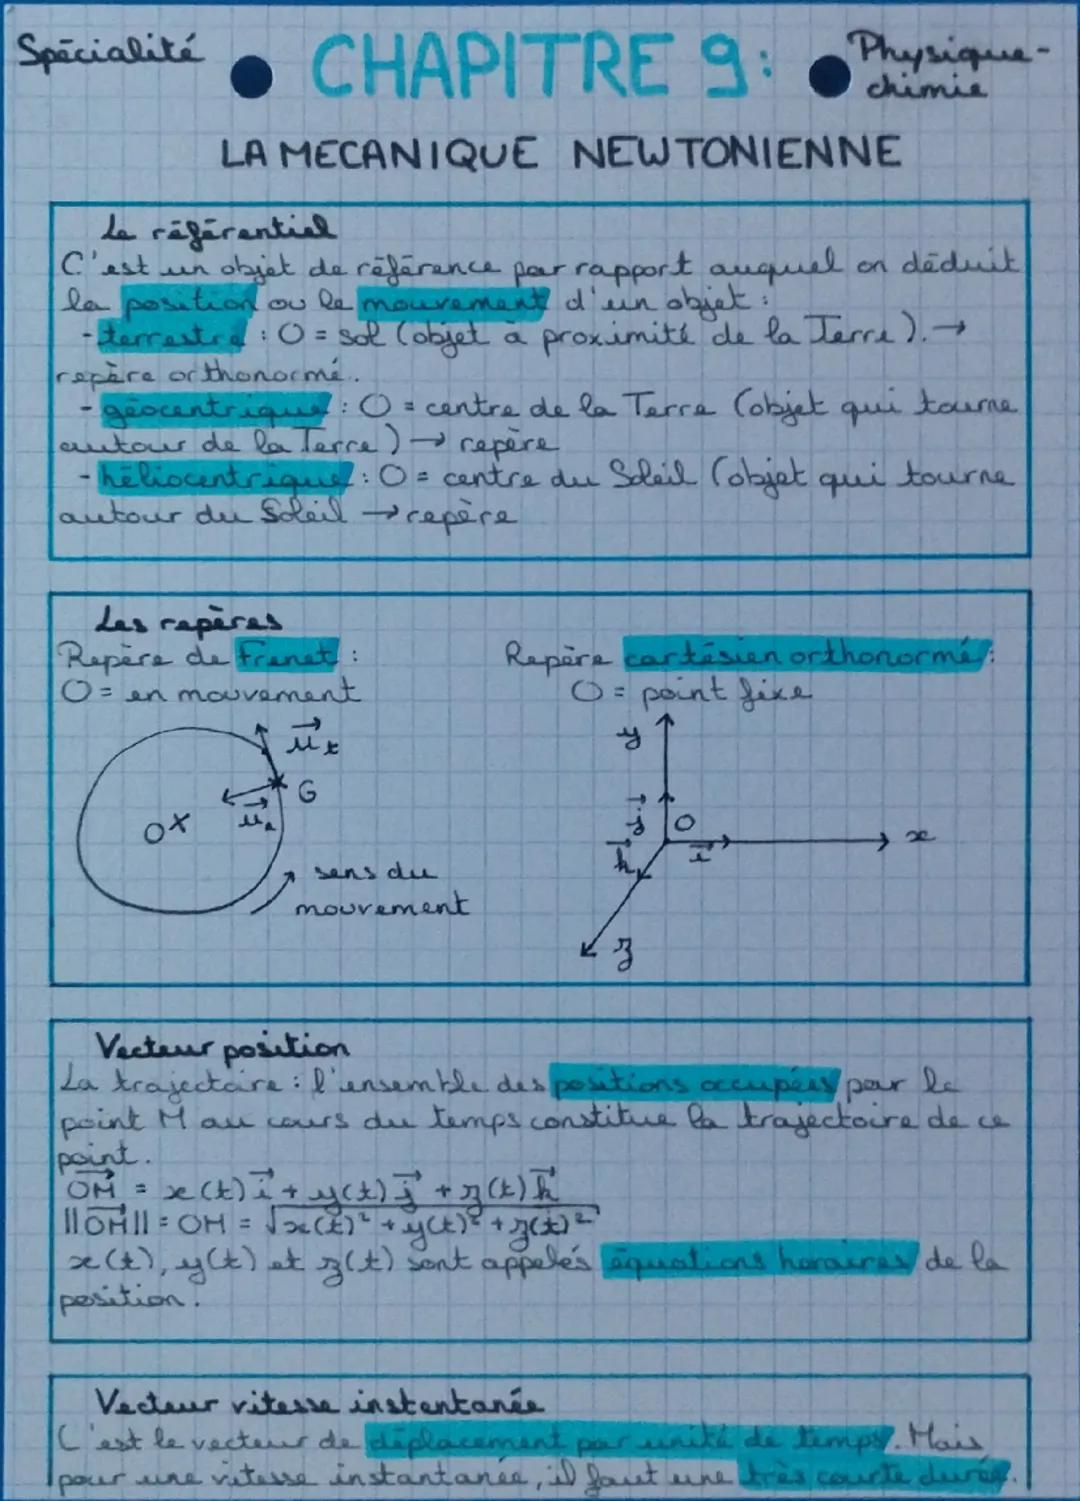 Spécialité
CHAPITRE 9:
Physique-
chimie
LA MECANIQUE NEWTONIENNE
Le référentiel
C'est un objet de référence par rapport auquel on déduit
la position ou le mouvement d'un objet :
- terrestre : O = sol (objet à proximité de la Terre). →
repère orthonormé.
- géocentrique : O = centre de la Terre (objet qui tourne
autour de la Terre) → repère
- héliocentrique : O = centre du Soleil (objet qui tourne
autour du Soleil → repère
Les repères
Repère de Frenet :
O = en mouvement
u⃗t
G
u⃗n
O
sens du
mouvement
Repère cartésien orthonormé :
O = point fixe
y
j⃗
O
k⃗
i⃗
x
z
Vecteur position
La trajectoire : l'ensemble des positions occupées par le
point M au cours du temps constitue la trajectoire de ce
point.
OM⃗ = x(t) i⃗ + y(t) j⃗ + z(t) k⃗
||OM⃗|| = OM = √x(t)² + y(t)² + z(t)²
x(t), y(t) et z(t) sont appelés équations horaires de la
position.
Vecteur vitesse instantanée
C'est le vecteur de déplacement par unité de temps. Mais
pour une vitesse instantanée, il faut une très courte durée.